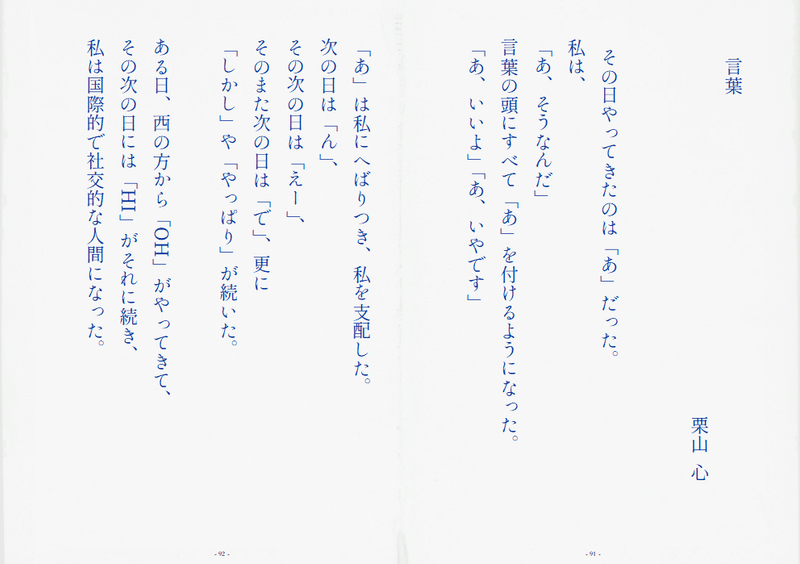 言葉
栗山 心
その日やってきたのは「あ」だった。
私は、
「あ、そうなんだ」
言葉の頭にすべて「あ」を付けるようになった。
「あ、いいよ」「あ、いやです」
- 91 -
「あ」は私にへばりつき、私を支配した。
次の日は「ん」、
その次の日は「えー」、
そのまた次の日は「で」、更に
「しかし」や「やっぱり」が続いた。
ある日、西の方から「OH」がやってきて、
その次の日には「HI」がそれに続き、
私は国際的で社交的な人間になった。
- 92 -